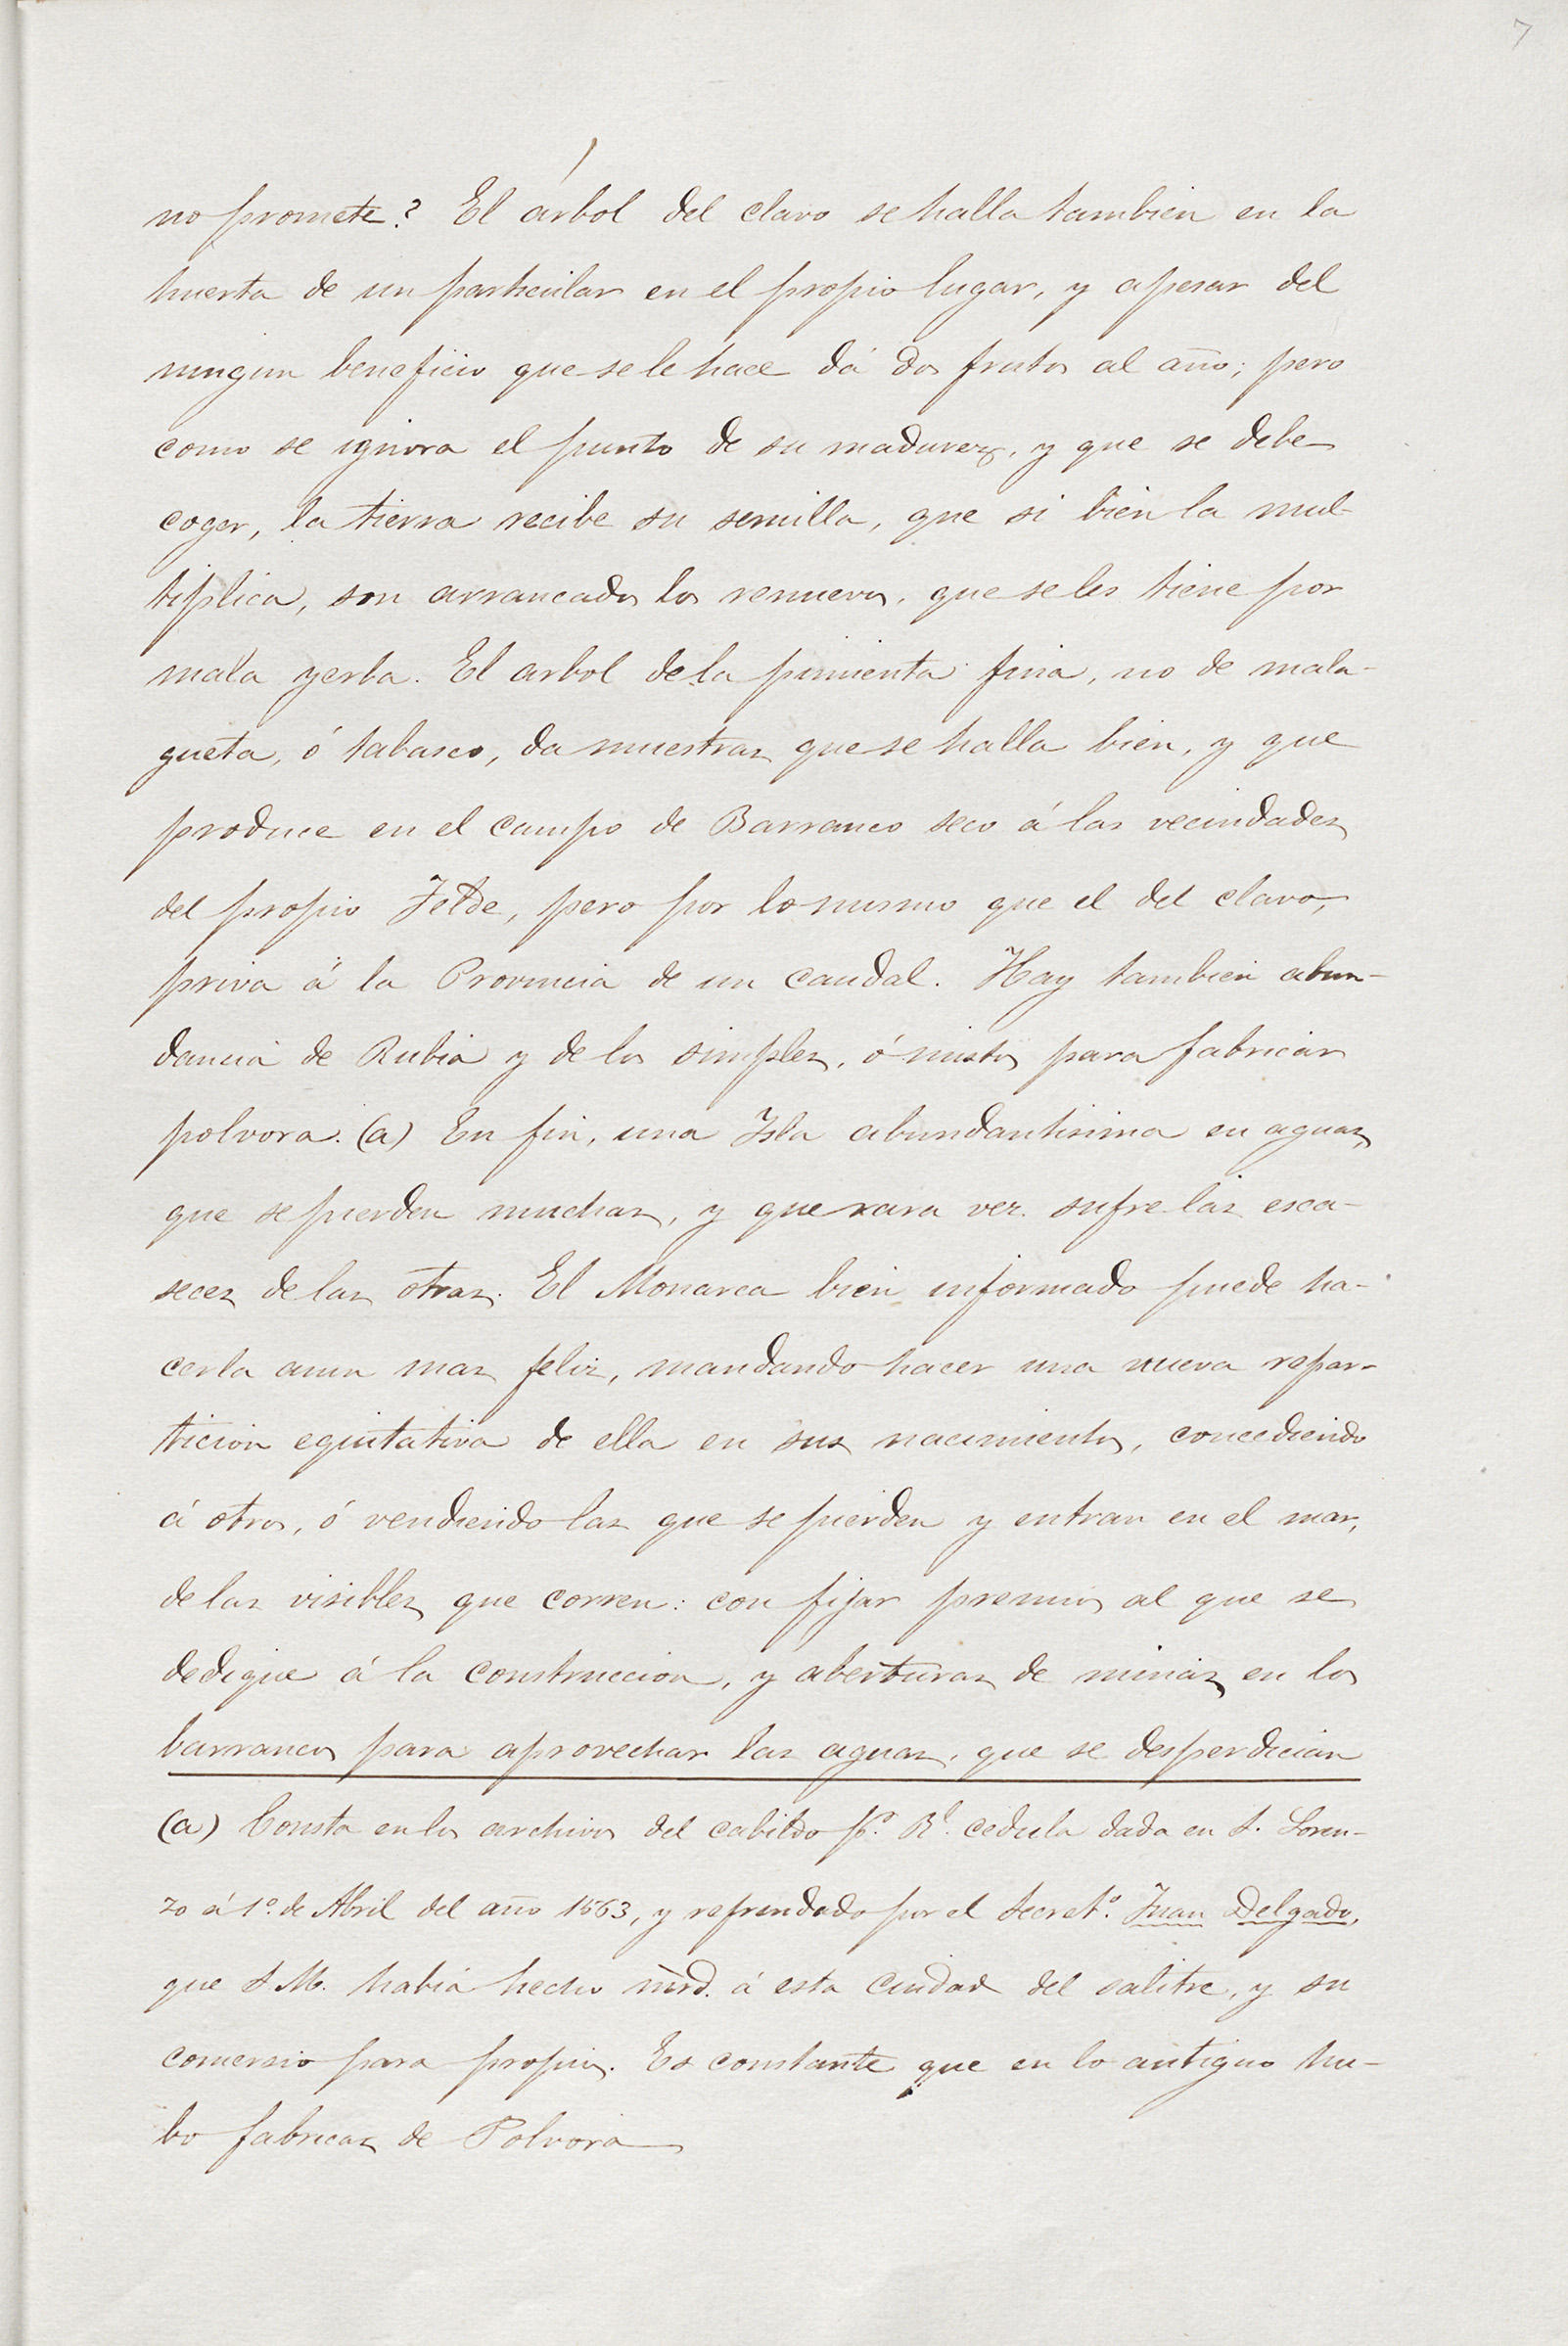 7
no promete? El árbol del clavo se halla tambien en la
huerta de un particular en el propio lugar, y apesar del
ningun beneficio que se le hace dá dos frutos al año; pero
como se ignora el punto de su madurez, y que se debe
coger, la tierra recibe su semilla, que si bien la mul-
tiplica, son arrancados los renuevos, que se les tiene por
mala yerba. El arbol de la pimienta fina, no de mala-
gueta, ó tabasco, da muestras que se halla bien, y que
produce en el campo de Barranco seco á las vecindades
del propio Telde, pero por lo mismo que el del clavo,
priva á la Provincia de un caudal. Hay tambien abun-
dancia de Rubia y de los simples, ó mistos para fabricar
polvora. (a) En fin, una Isla abundantisima en aguas,
que se pierden muchas, y que rara vez sufre las esca-
seces de las otras. El Monarca bien informado puede ha-
cerla aun mas feliz, mandando hacer una nueva repar-
ticion equitativa de ella en sus nacimientos, concediendo
á otros, ó vendiendo las que se pierden y entran en el mar,
de las visibles que corren: con fijar premios al que se
dedique á la construccion, y aberturas de minas en los
barrancos para aprovechar las aguas, que se desperdician
(a) Consta en los archivos del cabildo pr. Rl. cedula dada en S. Loren-
zo á 1º. de Abril del año 1563, y refrendado por el Secretº. Juan Delgado,
que S M. habia hecho mrd. á esta Ciudad del salitre, y su
comersio para propios. Es constante que en lo antiguo hu-
bo fabricas de Polvora